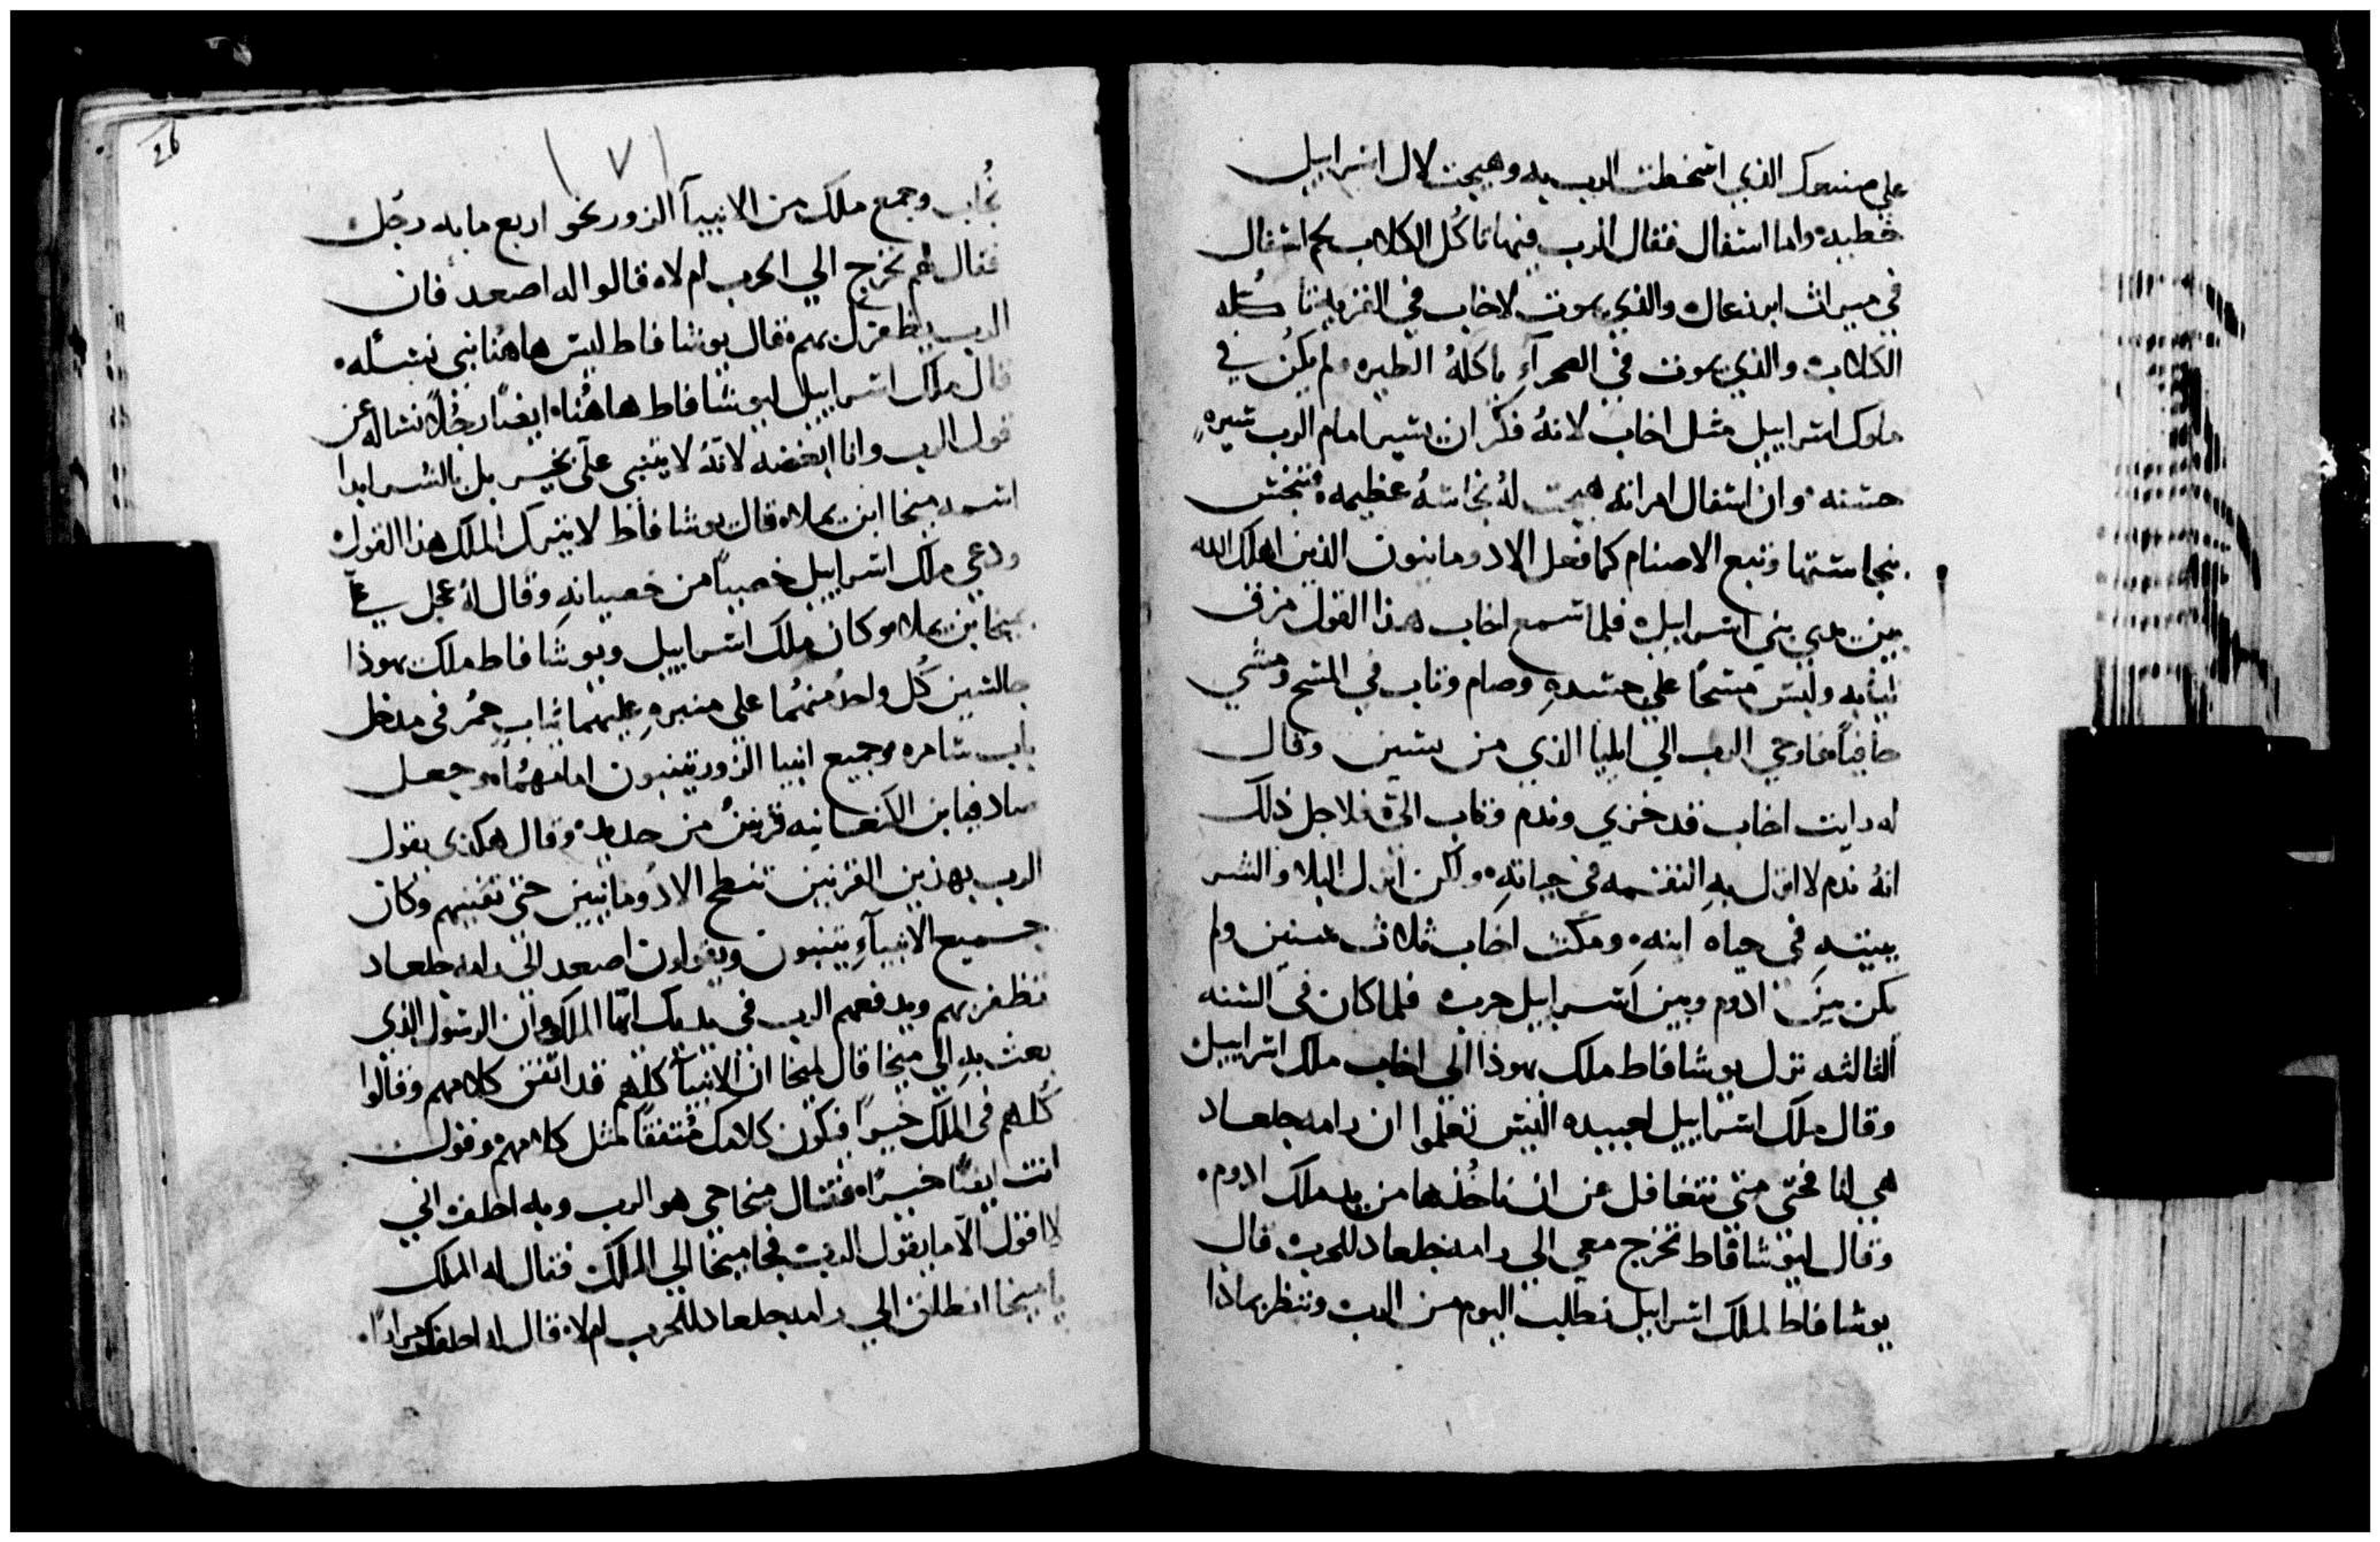 علي صنيعك الذي اسخطت الرب به وهيجت لال اسراييل
خطيه واما اسفال فقال الرب فيها تاكُل الكلاب لحم اسفال
في ميراث ايزرعال والذي يموت لاخاب في القريه تاكله
الكلاب والذي يموت في الصحرآءِ ياكلهُ الطير ولم يكُن في
ملوك اسراييل مثل اخاب لانهُ فكر ان يسير امام الرب سيرهِ
حسنه وان اسفال امراته هيجت لهُ نجاسهُ عظيمه فتنجس
بنجاستها وتبع الاصنام كما فعل الادومانيون الذين اهلك الله
بين يدي بني اسراييل فلما سمع اخاب هذا القول مزق
ثيابه ولبس مسحًا علي جسدهِ وصام وتاب في المسح ومشي
حافيًا فاوحي الرب الي ايليا الذي من يسين وقال
له رايت اخاب قد خزي وندم وتاب اليّ فلاجل ذلك
انهُ ندم لا انزل بهِ النقمه في حياتهِ ولكن انزل البلا والشر
ببيتهِ في حياه ابنهِ ومكث اخاب ثلاث سنين ولم
يكن بين ادوم وبين اسراييل حرب فلما كان في السنه
الثالثه نزل يوشافاط ملك يهوذا الي اخاب ملك اسراييل
وقال ملك اسراييل لعبيده اليس تعلموا ان رامه جلعاد
هي لنا فحتي متي نتغافل عن ان ناخُذها من يد ملك ادوم
وقال ليوشافاط تخرج معي الي رامه جلعاد للحرب قال
يوشافاط لملك اسراييل نطلب اليوم من الرب وننظر بماذا
26
١٧١
نُجاب وجمع ملك من الانبيآ الزور نحو اربع مايه رجُل
فقال لهم نخرج الي الحرب ام لا قالوا له اصعد فان
الرب يظفرك بهم قال يوشافاط ليس هاهُنا نبي نسئله
قال ملك اسراييل ليوشافاط هاهُنا ايضًا رجُلاً نساله عن
قول الرب وانا ابغضه لانهُ لا يتنبي عليّ بخير بل بالشر ابدا
اسمه ميخا ابن يملا قال يوشافاط لا يترك الملك هذا القول
ودعي ملك اسراييل خصيًا من خصيانهِ وقال لهُ عجل عليّ
بميخا بن يملا وكان ملك اسراييل ويوشافاط ملك يهوذا
جالسين كُل واحدٌ منهُما علي منبرهِ عليهما ثياب حُمر في مدخل
باب شامره وجميع انبيا الزور يتنبون امامهُما وجعل
صادقيا بن الكنعانيه قرنين من حديد وقال هكذي يقول
الرب بهذين القرنين تنطح الادومانيين حتي تفنيهم وكان
جميع الانبيآءِ يتنبون ويقولون اصعد الي رامه جلعاد
تظفر بهم ويدفعهم الرب في يديك ايها الملك وان الرسول الذي
بعث بهِ الي ميخا قال لميخا ان الانبيآ كلهم قد اتفق كلامهم وقالوا
كُلهم في الملك خيرًا فيكون كلامك مُتفقًا لمثل كلامهم وقول
انت ايضًا خيرًا فقال ميخا حي هو الرب وبه احلف اني
لا اقول الا ما يقول الرب فجا ميخا الي الملك فقال له الملك
يا ميخا انطلق الي رامه جلعاد للحرب ام لا قال له احلفك مرارًا